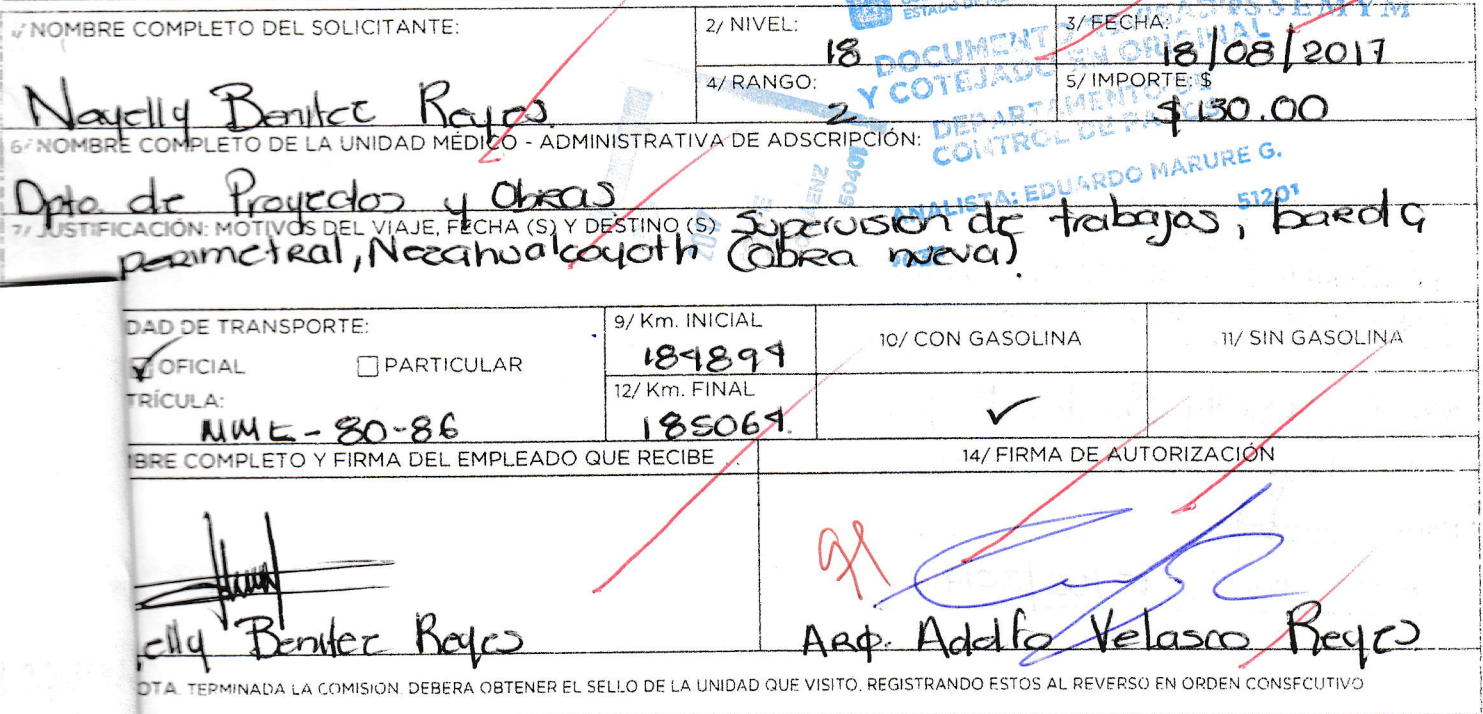 1/ NOMBRE COMPLETO DEL SOLICITANTE:
Nayelly Benitez Reyes
2/ NIVEL:
18
3/ FECHA:
18/08/2017
4/ RANGO:
2
5/ IMPORTE: $
$ 130.00
DOCUMENTO
Y COTEJADO EN ORIGINAL
DEPARTAMENTO DE
CONTROL DE PAGOS
ANALISTA: EDUARDO MARURE G.
51201
50401
2017
6/ NOMBRE COMPLETO DE LA UNIDAD MÉDICO - ADMINISTRATIVA DE ADSCRIPCIÓN:
Dpto de Proyectos y Obras
7/ JUSTIFICACIÓN: MOTIVOS DEL VIAJE, FECHA (S) Y DESTINO (S) Supervision de trabajos, barda
perimetral, Nezahualcoyotl (obra nueva)
DAD DE TRANSPORTE:
OFICIAL PARTICULAR
TRÍCULA:
MME-80-86
9/ Km. INICIAL
184894
12/ Km. FINAL
185064
10/ CON GASOLINA
11/ SIN GASOLINA
BRE COMPLETO Y FIRMA DEL EMPLEADO QUE RECIBE
elly Benitez Reyes
14/ FIRMA DE AUTORIZACIÓN
Arq. Adolfo Velasco Reyes
OTA. TERMINADA LA COMISION, DEBERA OBTENER EL SELLO DE LA UNIDAD QUE VISITO, REGISTRANDO ESTOS AL REVERSO EN ORDEN CONSECUTIVO